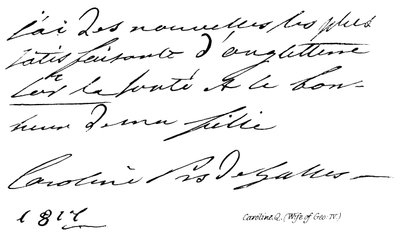 j'ai des nouvelles les plus
satisfaisante d'angletterre
sur la santé et le bon-
heur de ma fille
Caroline Pss de Galles —
1817
Caroline. Q. (Wife of Geo. IV.)